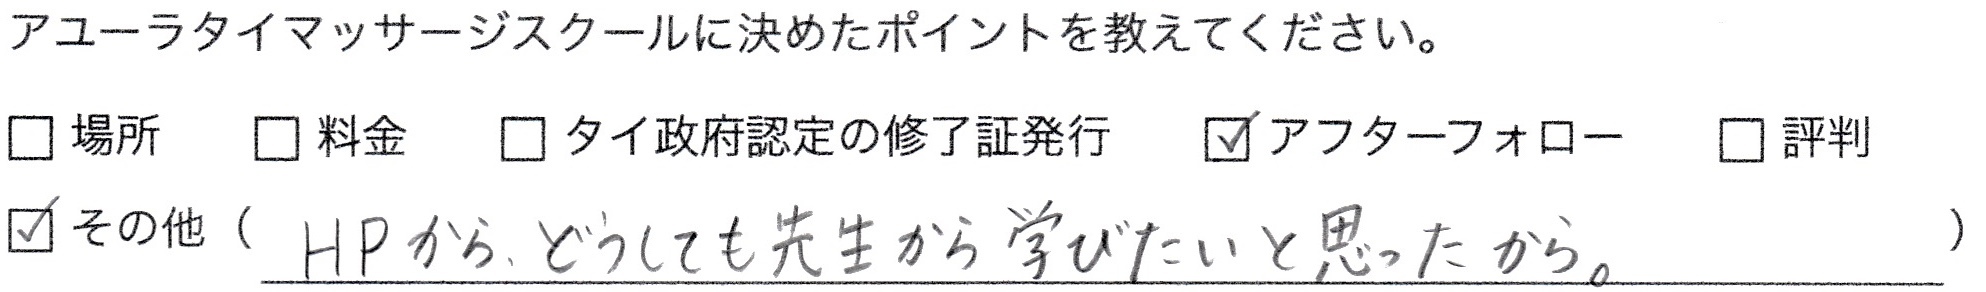 アユーラタイマッサージスクールに決めたポイントを教えてください。
□ 場所 □ 料金 □ タイ政府認定の修了証発行 ☑ アフターフォロー □ 評判
☑ その他 ( HPから、どうしても先生から学びたいと思ったから。 )